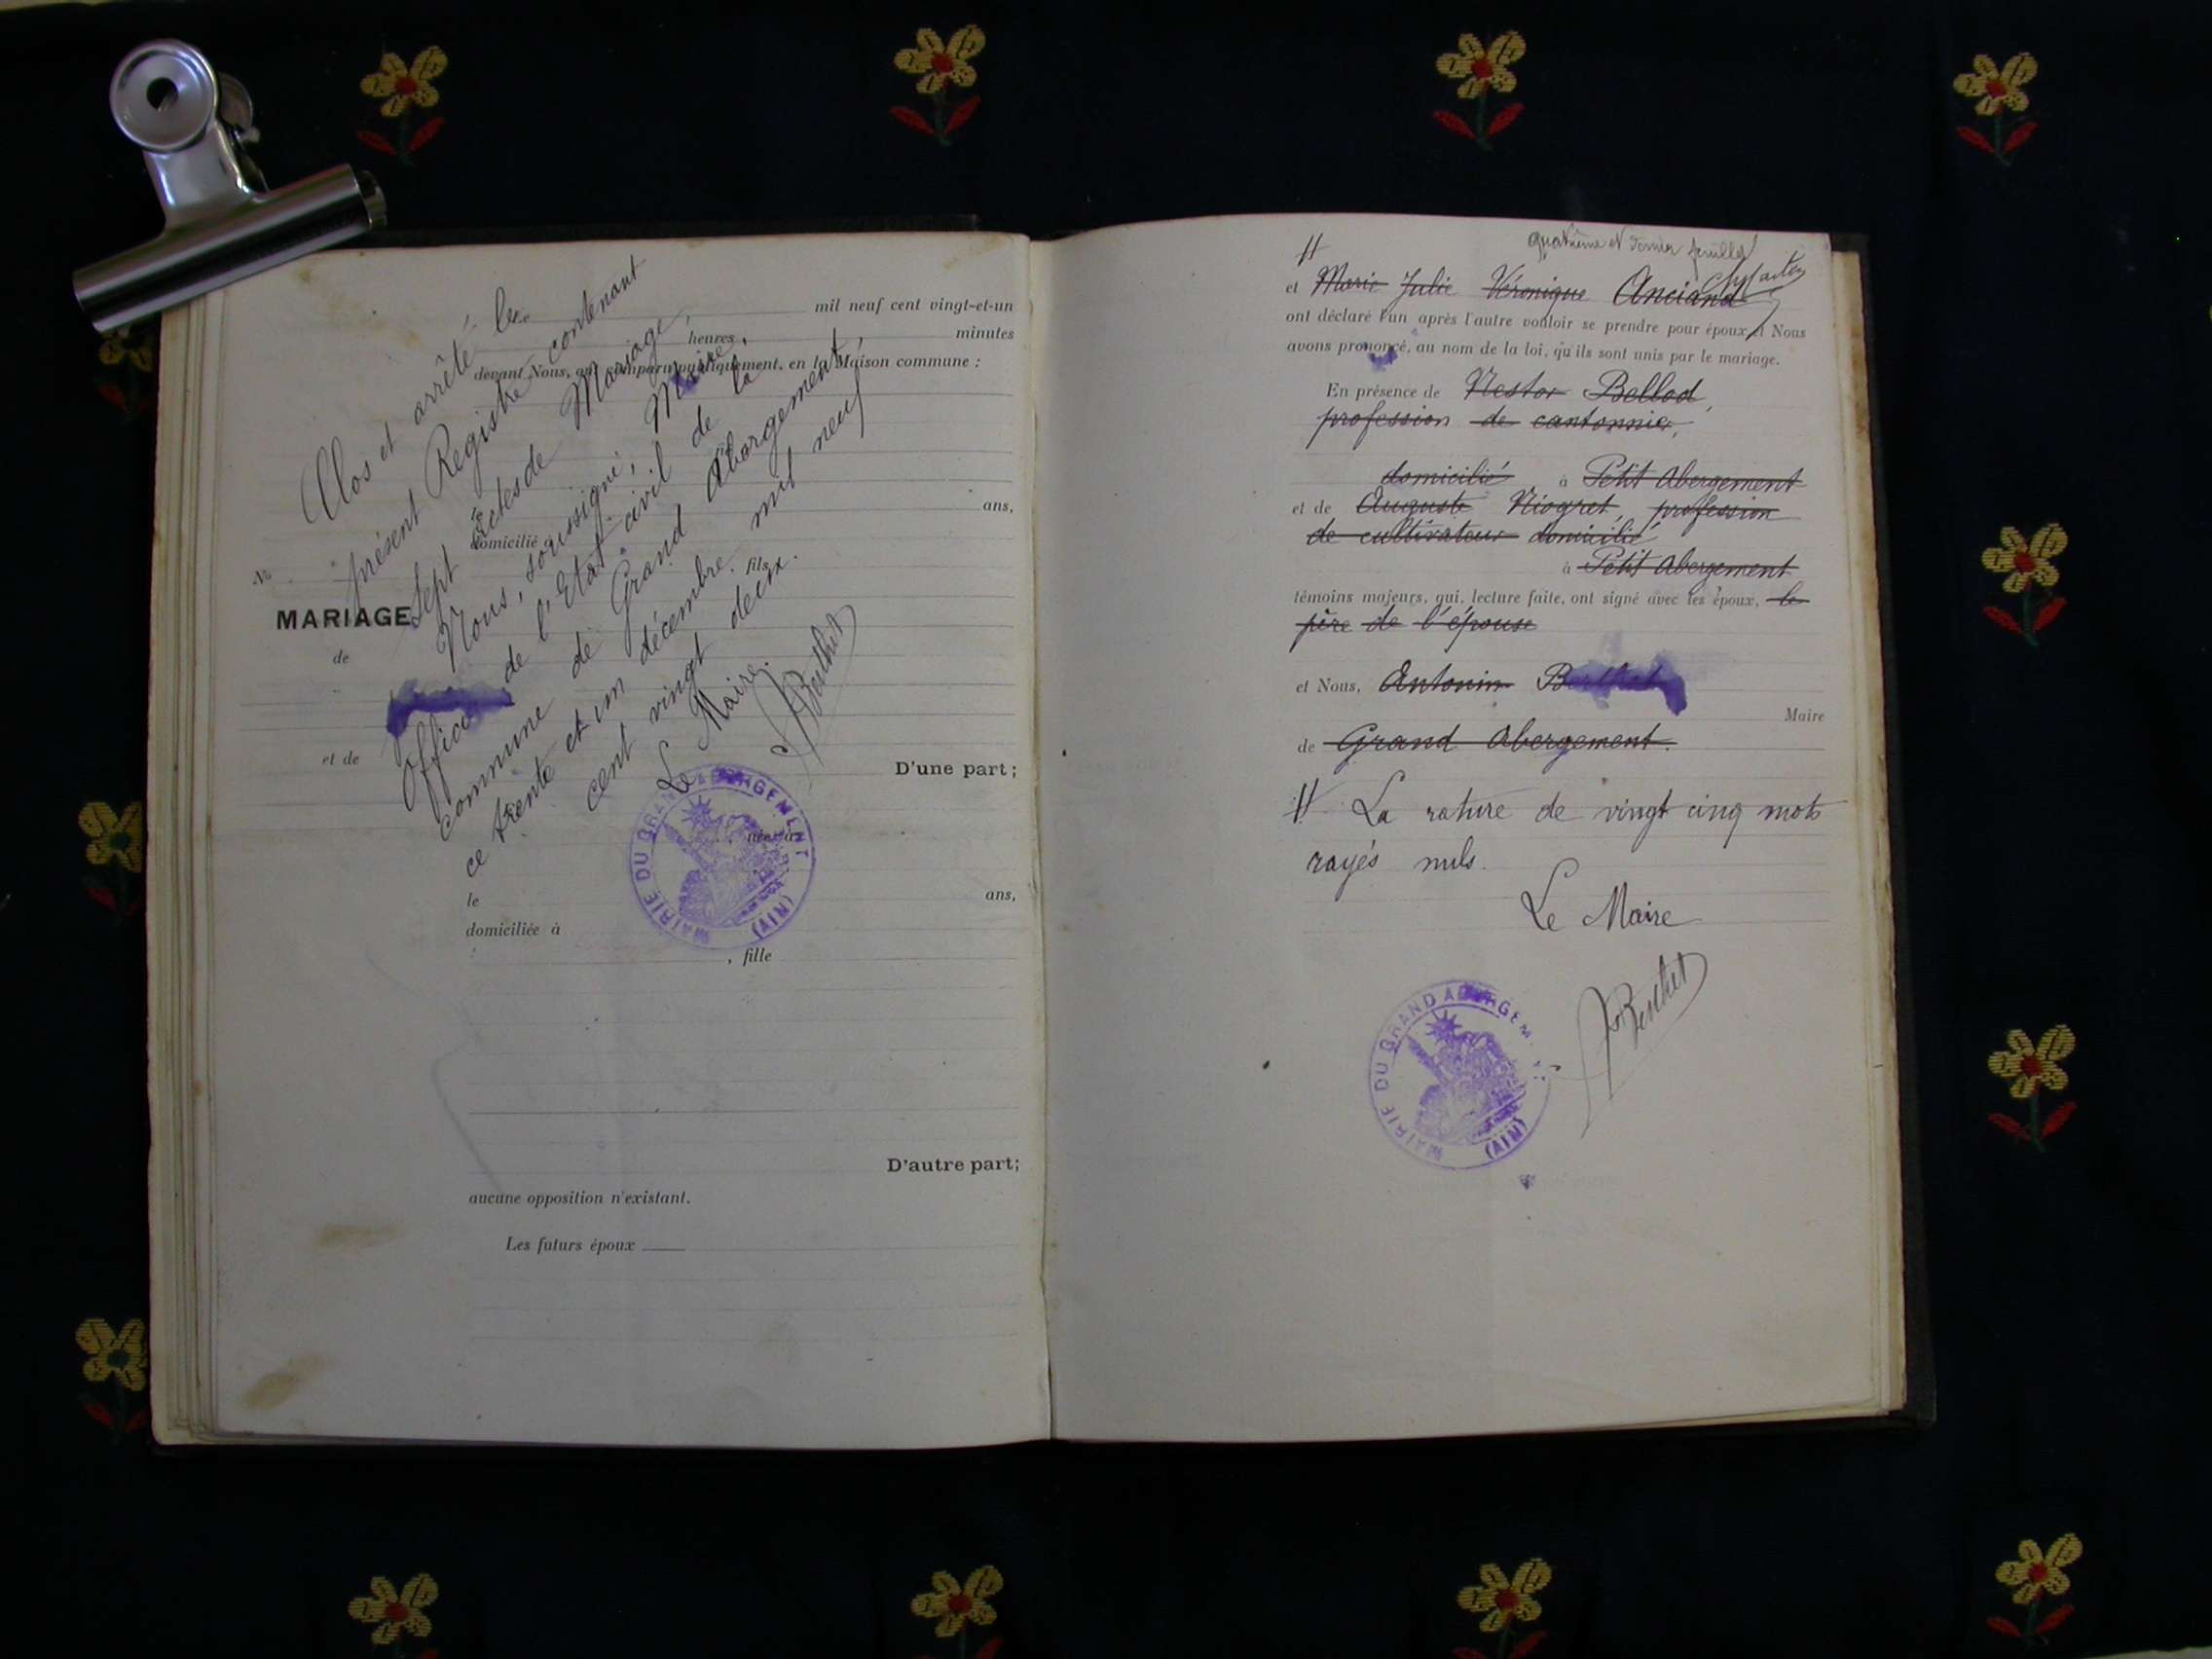 mil neuf cent vingt-et-un
heures minutes
devant Nous, ont comparu publiquement, en la Maison commune :
Clos et arrêté le
présent Registre contenant
Sept Actes de Mariage,
Nous, soussigné, Maire,
Officier de l'Etat-civil de la
commune de Grand Abergement,
ce trente et un décembre mil neuf
cent vingt deux.
Le Maire
ABerthet
ans,
domicilié à
fils
No
MARIAGE
de
et de
D'une part;
née à
MAIRIE DU GRAND ABERGEMENT
(AIN)
le ans,
domiciliée à
, fille
D'autre part;
aucune opposition n'existant.
Les futurs époux
quatrième et dernier feuillet
et Marie Julie Véronique Anciand
ont déclaré l'un après l'autre vouloir se prendre pour époux, et Nous
avons prononcé, au nom de la loi, qu'ils sont unis par le mariage.
En présence de Nestor Ballod,
profession de cantonnier,
domicilié à Petit Abergement
et de Auguste Niogret, profession
de cultivateur domicilié
à Petit Abergement
témoins majeurs, qui, lecture faite, ont signé avec les époux, le
père de l'épouse
et Nous, Antonin
Maire
de Grand Abergement.
La rature de vingt cinq mots
rayés nuls.
Le Maire
ABerthet
MAIRIE DU GRAND ABERGEM
(AIN)